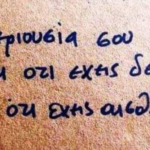 ριουσία σου
ότι έχεις δε
ότι έχεις αισθ